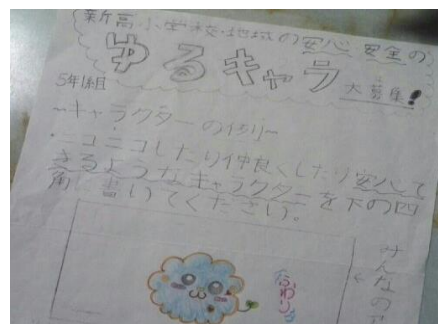 新高小学校・地域の安心安全の
ゆるキャラ
大募集!
5年1組
~キャラクターの例~
・ニコニコしたり仲良くしたり安心して
きるようなキャラクターを下の四
角に書いてください。
ふわりん
みんなの